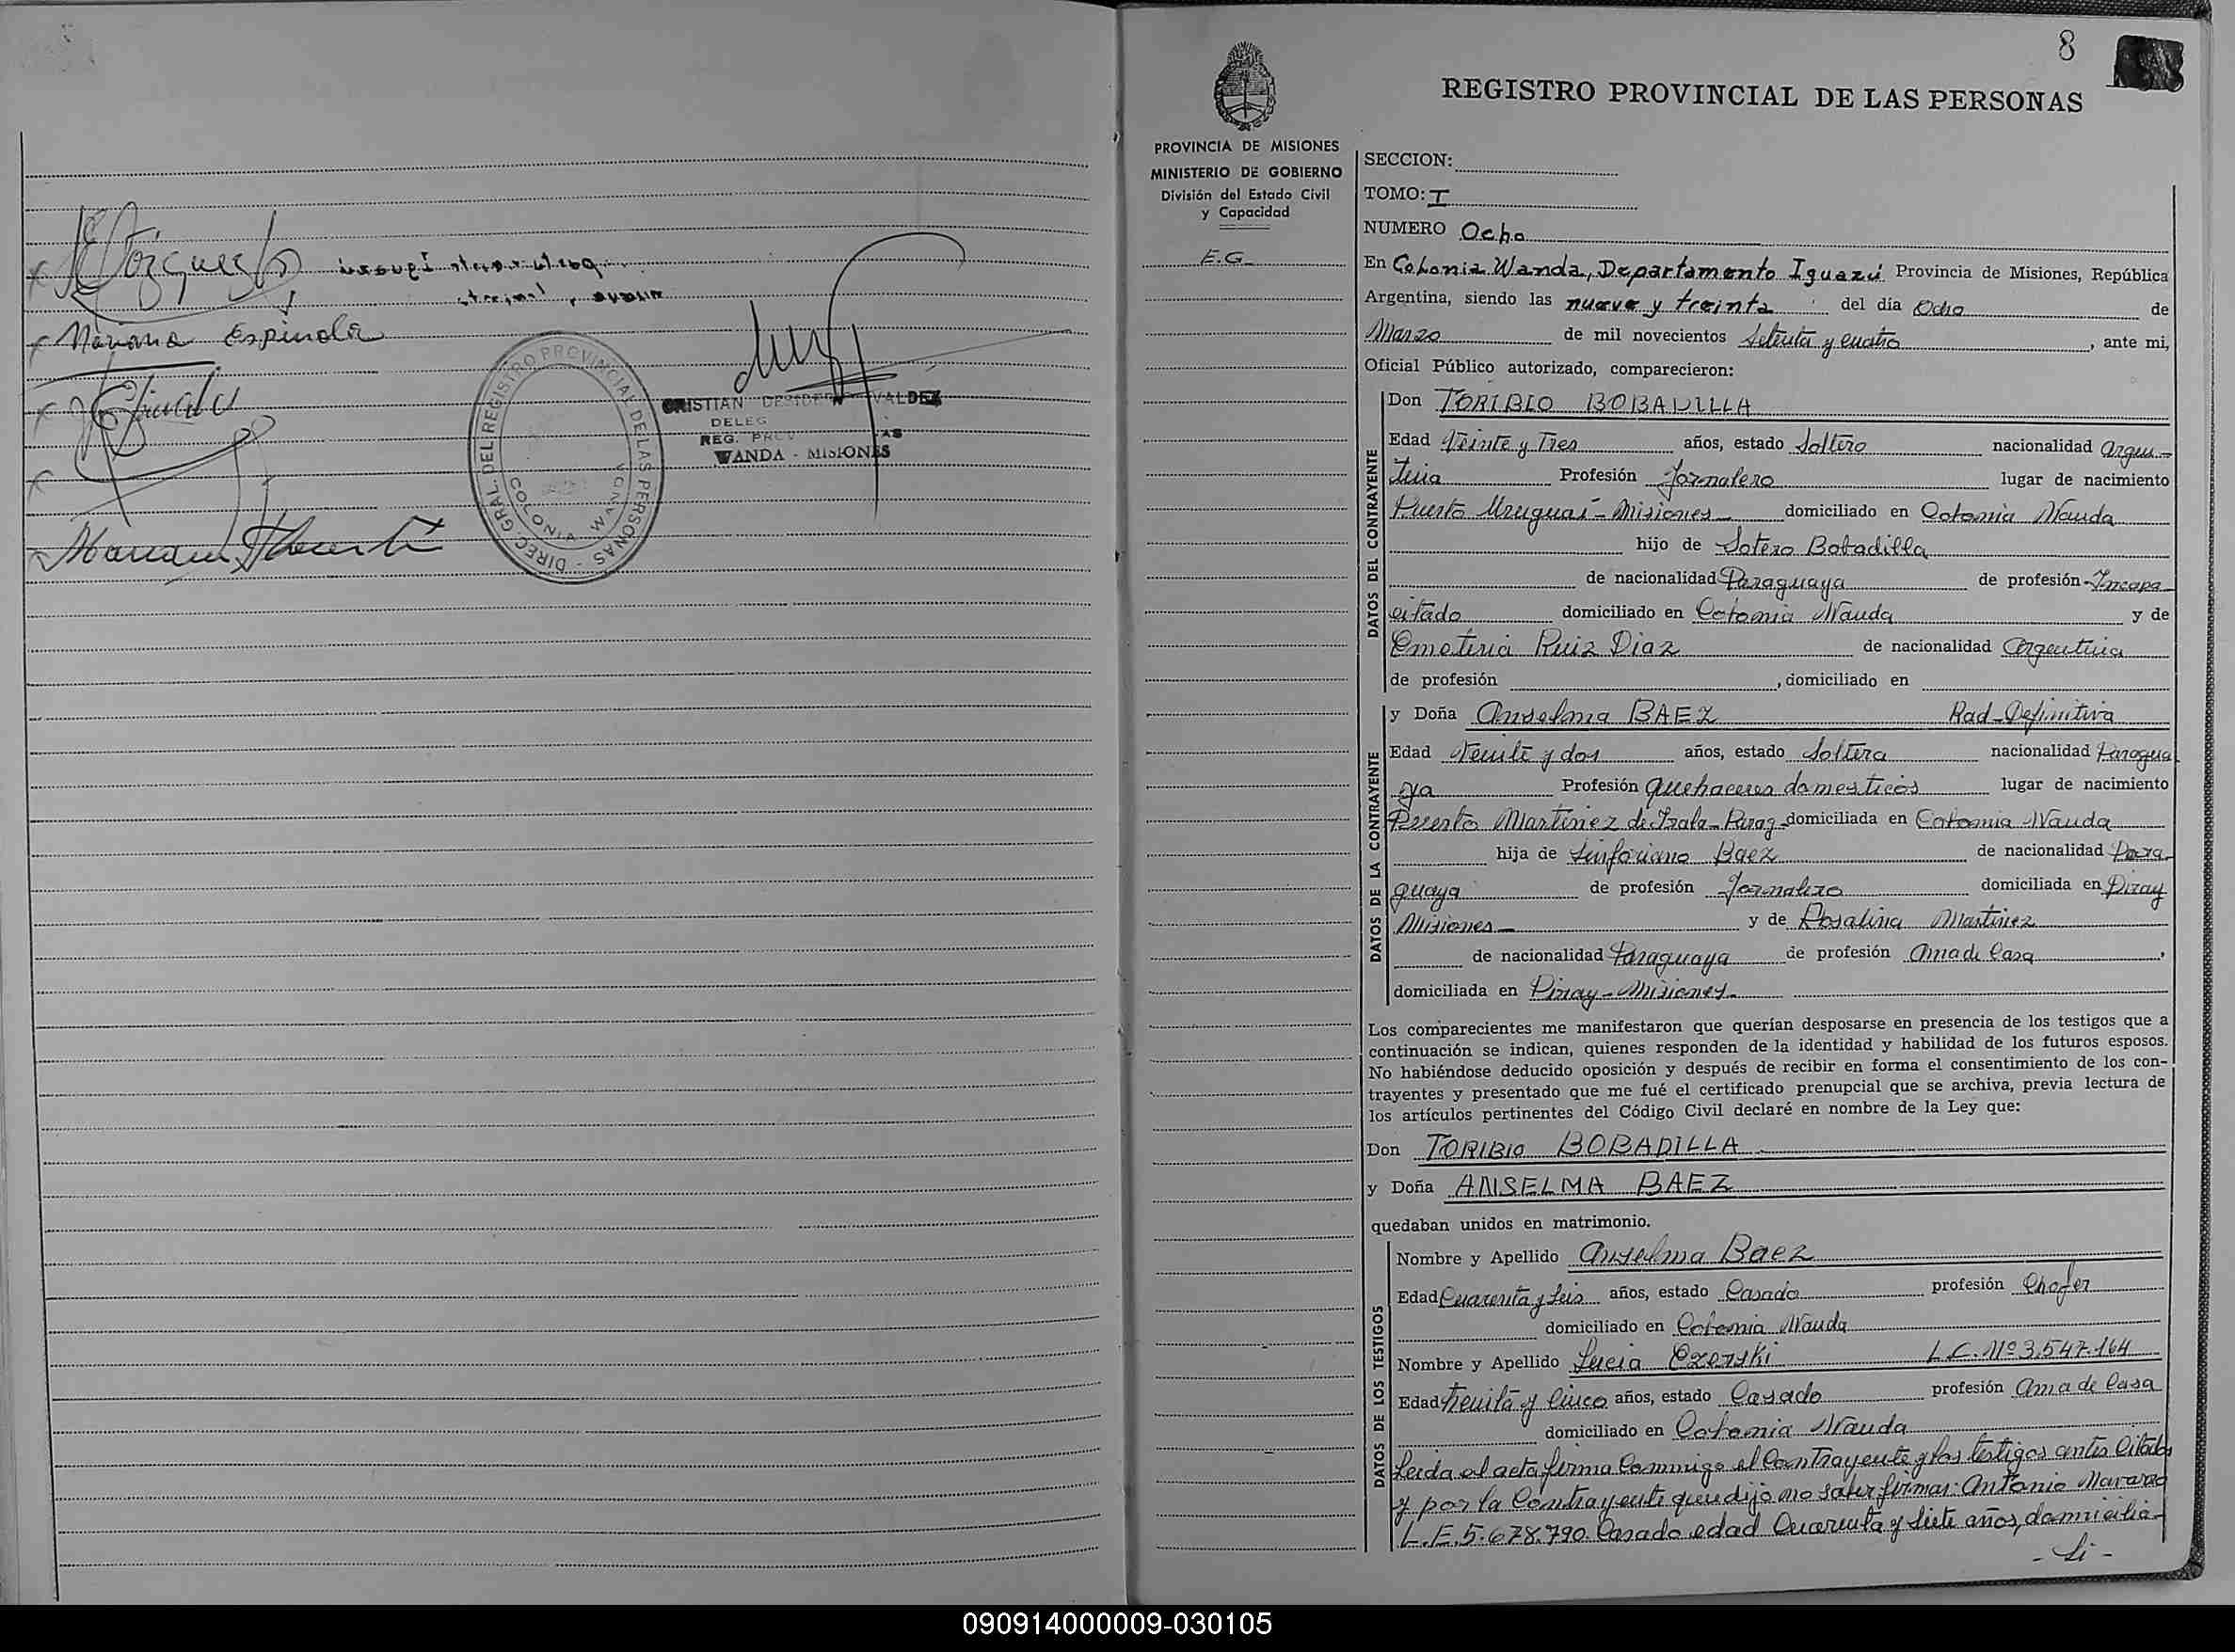 Mariana Espinola
DIREC. GRAL. DEL REGISTRO PROVINCIAL DE LAS PERSONAS
COLONIA WANDA
CRISTIAN VALDEZ
DELEG
REG. PROV AS
WANDA - MISIONES
8
REGISTRO PROVINCIAL DE LAS PERSONAS
PROVINCIA DE MISIONES
MINISTERIO DE GOBIERNO
División del Estado Civil
y Capacidad
E.G
SECCION:
TOMO: I
NUMERO Ocho
En Colonia Wanda, Departamento Iguazú Provincia de Misiones, República
Argentina, siendo las nueve y treinta del día Ocho de
Marzo de mil novecientos Setenta y cuatro, ante mi,
Oficial Público autorizado, comparecieron:
DATOS DEL CONTRAYENTE
Don TORIBIO BOBADILLA
Edad Veinte y Tres años, estado Soltero nacionalidad argen-
tina Profesión Jornalero lugar de nacimiento
Puerto Uruguai - Misiones - domiciliado en Colonia Wanda
hijo de Sotero Bobadilla
de nacionalidad Paraguaya de profesión Incapa
citado domiciliado en Colonia Wanda y de
Emeteria Ruiz Diaz de nacionalidad Argentina
de profesión , domiciliado en
DATOS DE LA CONTRAYENTE
y Doña Anselma BAEZ Rad-Definitiva
Edad Veinte y dos años, estado Soltera nacionalidad Paragua
ya Profesión quehaceres domesticos lugar de nacimiento
Puerto Martinez de Irala - Parag- domiciliada en Colonia Wanda
hija de Sinforiano Baez de nacionalidad Para
guaya de profesión Jornalero domiciliada en Piray
Misiones - y de Rosalina Martinez
de nacionalidad Paraguaya de profesión Ama de Casa ,
domiciliada en Piray - Misiones -
Los comparecientes me manifestaron que querían desposarse en presencia de los testigos que a
continuación se indican, quienes responden de la identidad y habilidad de los futuros esposos.
No habiéndose deducido oposición y después de recibir en forma el consentimiento de los con-
trayentes y presentado que me fué el certificado prenupcial que se archiva, previa lectura de
los artículos pertinentes del Código Civil declaré en nombre de la Ley que:
Don TORIBIO BOBADILLA
y Doña ANSELMA BAEZ
quedaban unidos en matrimonio.
DATOS DE LOS TESTIGOS
Nombre y Apellido Anselma Baez
Edad Cuarenta y Seis años, estado Casado profesión Chofer
domiciliado en Colonia Wanda
Nombre y Apellido Lucia Czerski L.C. Nº 3.547.164
Edad Treinta y Cinco años, estado Casado profesión Ama de Casa
domiciliado en Colonia Wanda
Leida el acta firma Conmigo el Contrayente y los testigos antes Citados
y por la Contrayente quien dijo no saber firmar: Antonio
L.E. 5.678.790. Casado edad Cuarenta y Siete años, domicilia-
- Si -
090914000009-030105